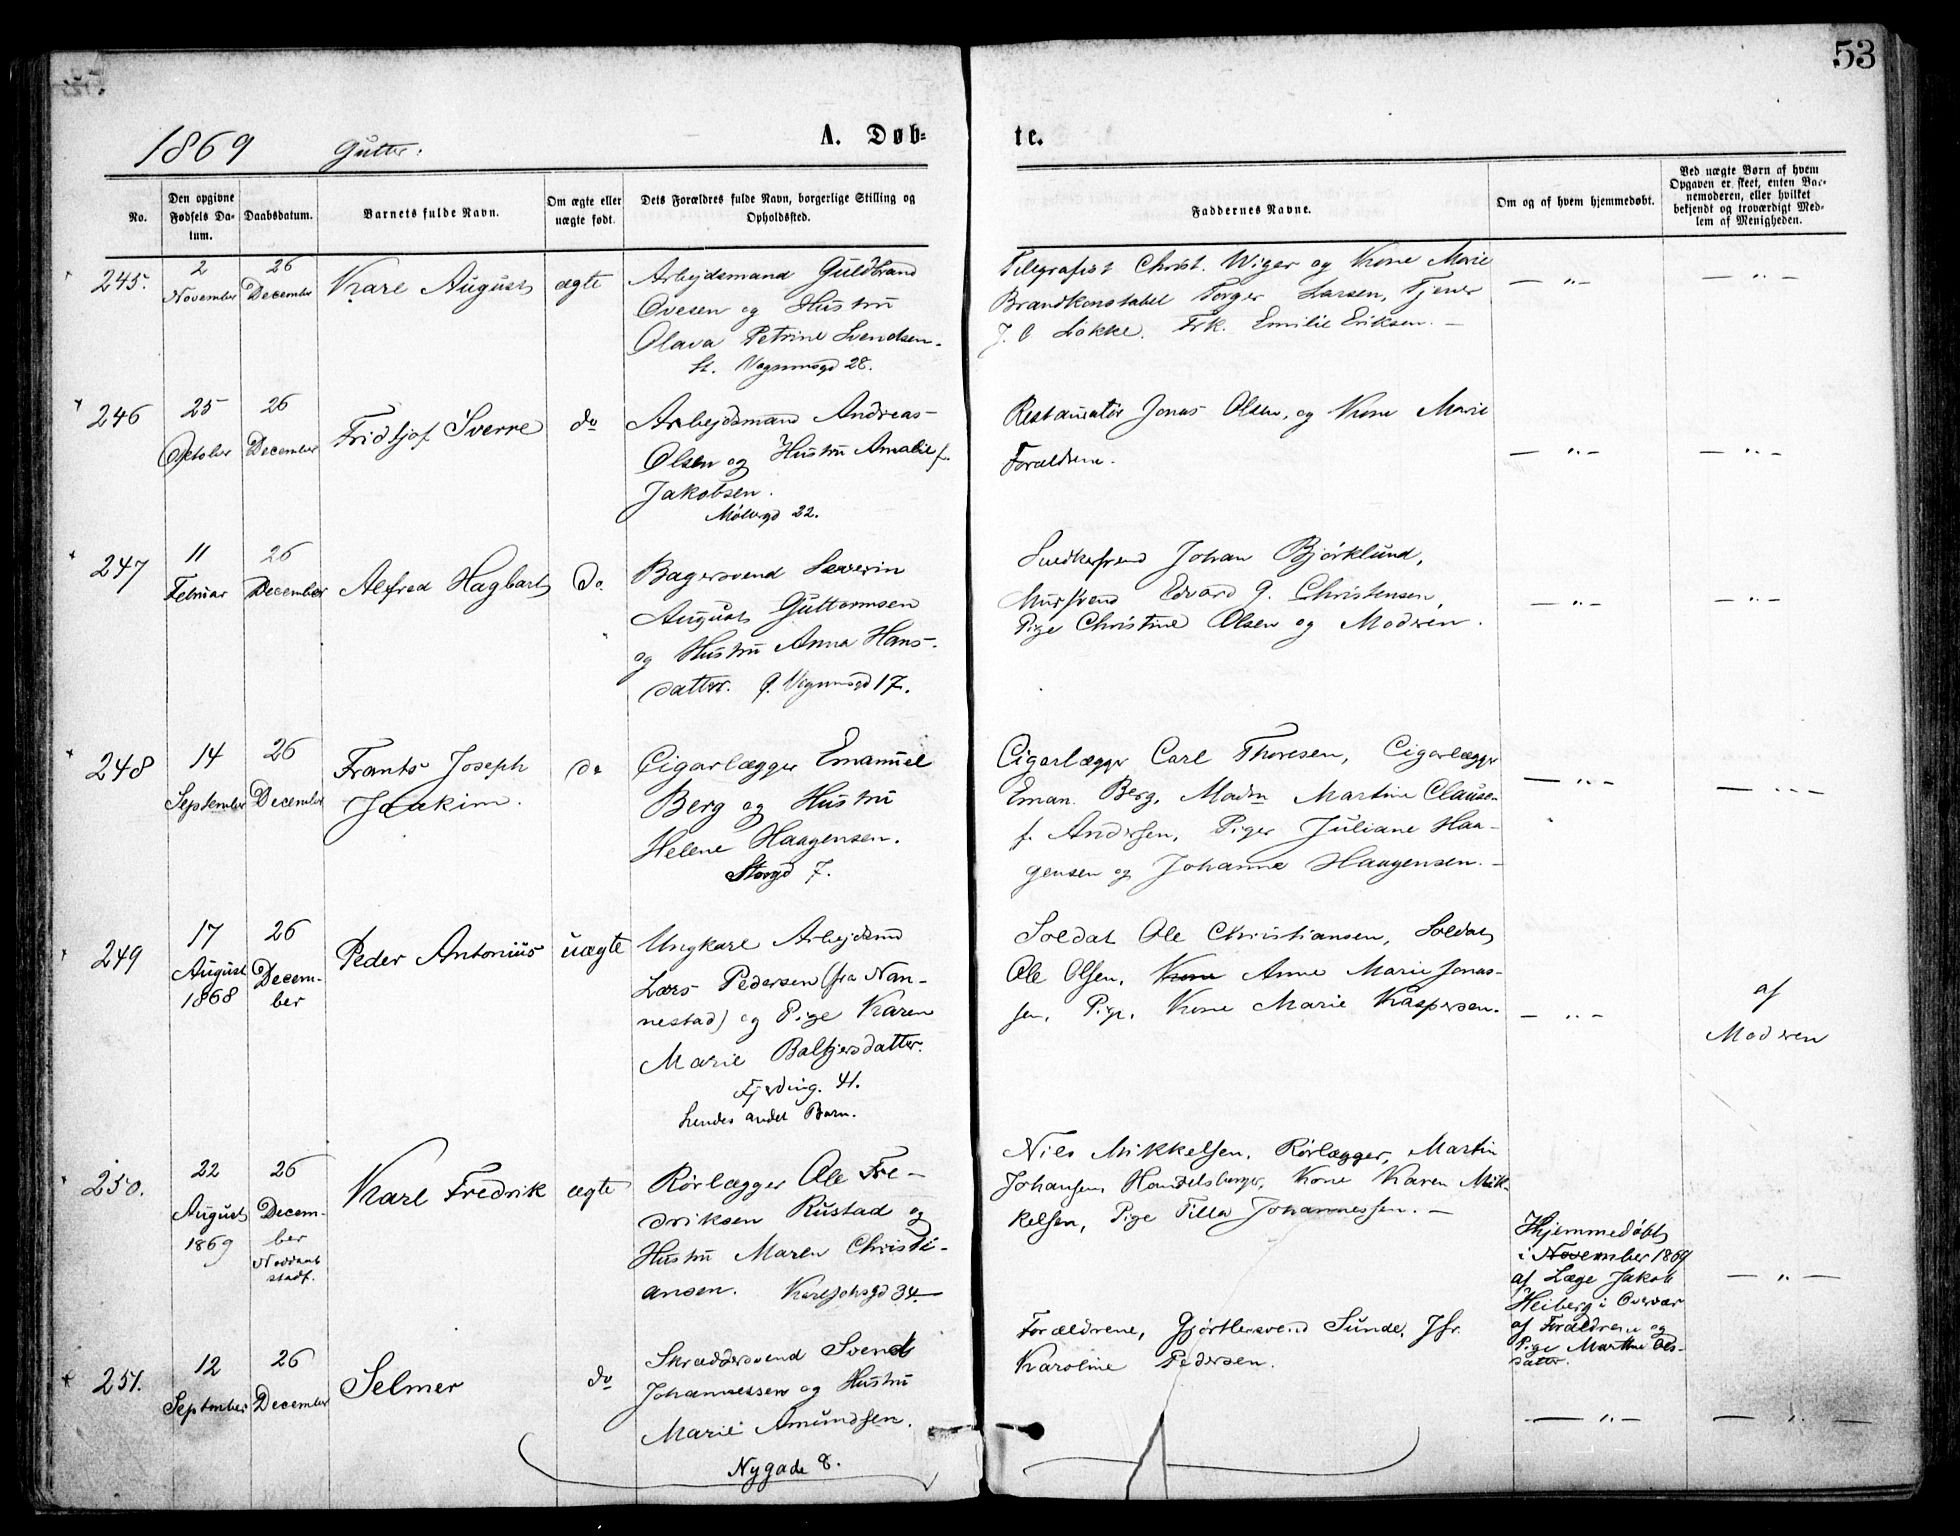 53
1869 Gutter:
A. Døb-
te.
No.
Den opgivne Fødsels Da-
tum.
Daabsdatum.
Barnets fulde Navn.
Om ægte eller
uægte født.
Dets Forældres fulde Navn, borgerlige Stilling og
Opholdsted.
Faddernes Navne.
Om og af hvem hjemmedøbt.
Ved uægte Børn af hvem
Opgaven er skeet, enten Bar-
nemoderen, eller hvilket
bekjendt og troværdigt Med-
lem af Menigheden.
245.
2
November
26
December
Karl August
ægte
Arbejdsmand Guldbrand
Ovesen og Hustru
Olava Petrine Svendsen.
St. Vognmsgd 28.
Telegrafist Christ. Wiger og Kone Marie
Brandkonstabel Torger Larsen, Tjener
J. C Løkke. Frk. Emilie Eriksen. —
— " —
— " —
246
25
Oktober
26
December
Fridtjof Sverre
do
Arbejdsmand Andreas
Olsen og Hustru Amalie f.
Jakobsen.
Møllergd 22.
Restauratør Jonas Olsen, og Kone Marie
Forældrene.
— " —
— " —
247
11
Februar
26
December
Alfred Hagbart
do
Bagersvend Severin
August Guttormsen
og Hustru Anna Hans-
datter. g. Vognmsgd 17.
Snedkersvend Johan Bjørklund,
Mursvend Edvard G. Christensen,
Pige Christine Olsen og Modren.
— " —
— " —
248
14
September
26
December
Frants Joseph
Joakim.
do
Cigarlægger Emanuel
Berg og Hustru
Helene Haagensen.
Storgd 7.
Cigarlægger Carl Thoresen, Cigarlægger
Eman. Berg, Madm Martine Clause-
f. Andersen, Piger Juliane Haa-
gensen og Johanne Haagensen. —
— " —
— " —
249
17
August
1868
26
Decem-
ber
Peder Antonius
uægte
Ungkarl Arbejdsmd
Lars Pedersen (fra Nan-
nestad) og Pige Karen
Marie Balkjersdatter.
Fjerding. 41.
hendes andet Barn.
Soldat Ole Christiansen, Soldat
Ole Olsen, Kone Anne Marie Jonas-
sen, Pige, Kone Marie Kaspersen.
— " —
af
Modren
250.
22
August
1869
26
Decem-
ber
Nøddaab
stadf.
Karl Fredrik
ægte
Rørlægger Ole Fre-
driksen Rustad og
Hustru Maren Christi-
ansen. Karl Johsgd 34. —
Nils Mikkelsen, Rørlægger, Martin
Johansen Handelsborger, Kone Karen Mik-
kelsen, Pige Tilla Johannessen. —
Hjemmedøbt
i November 1869
af Læge Jakob
Heiberg i Overvær
af Forældrene og
Pige Marthe Ols-
datter.
— " —
251.
12
September
26
December
Selmer
do
Skræddersvend Svend
Johannessen og Hustru
Marie Amundsen.
Nygade 8.
Forældrene, Gjørtlersvend Sunde, Jfr.
Karoline Pedersen.
— " —
— " —